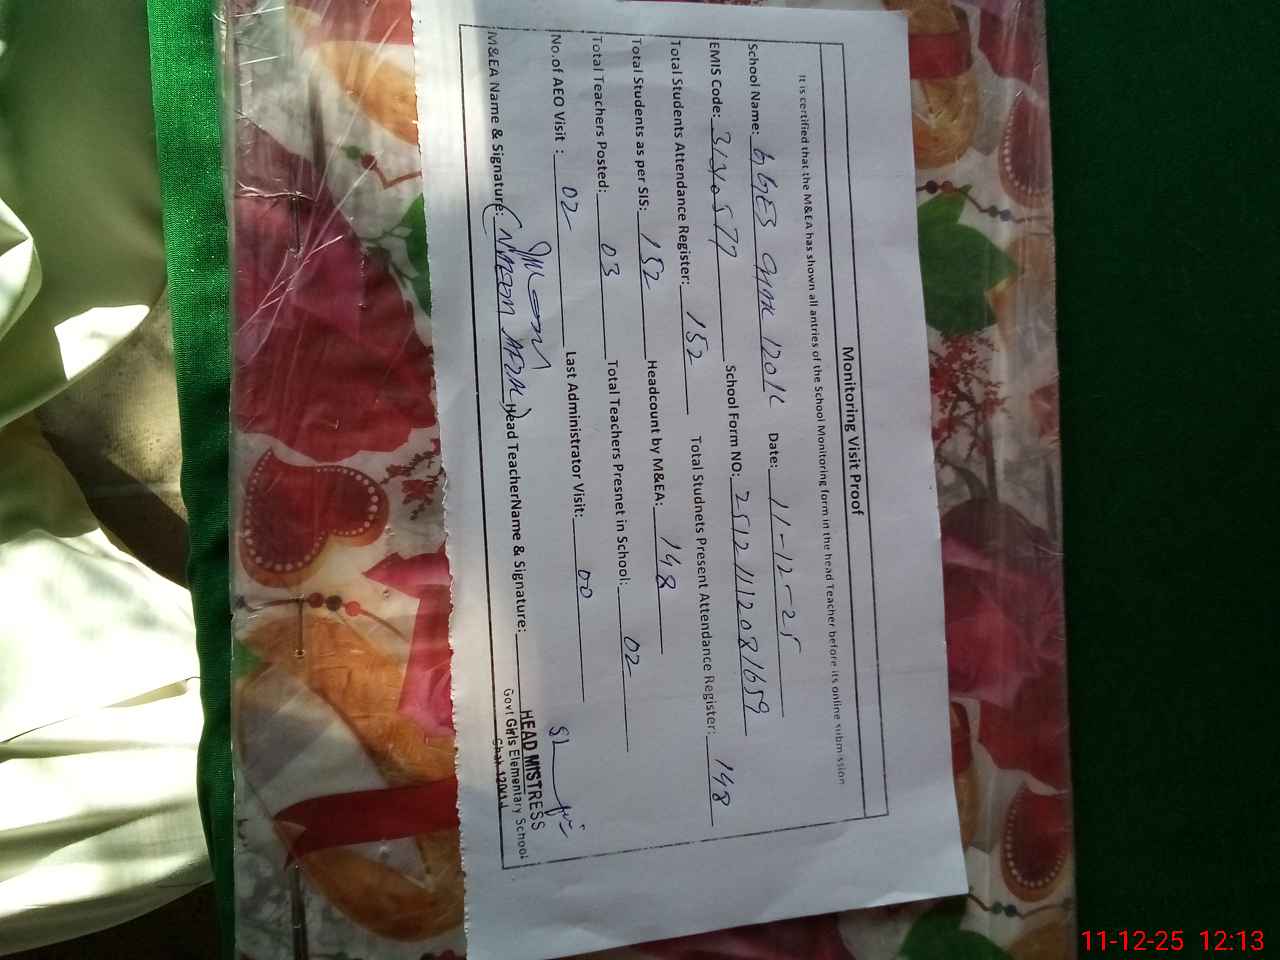 Monitoring Visit Proof
It is certified that the M&EA has shown all antries of the School Monitoring form in the head Teacher before its online submission
School Name: GGES Chak 120/L Date: 11-12-25
EMIS Code: 31340577 School Form NO: 251211112081659
Total Students Attendance Register: 152 Total Studnets Present Attendance Register: 148
Total Students as per SIS: 152 Headcount by M&EA: 148
Total Teachers Posted: 03 Total Teachers Presnet in School: 02
No.of AEO Visit : 02 Last Administrator Visit: 00
M&EA Name & Signature: Head TeacherName & Signature:
HEAD MISTRESS
Govt Girls Elementary School
Chak
11-12-25 12:13